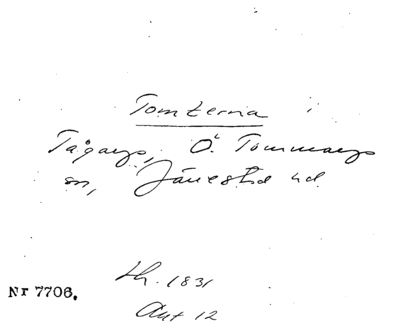 Tomterna i
Tågarp, Ö. Tommarps
sn, Järrestad hd.
Lh. 1831
Nr 7706.
Akt 12